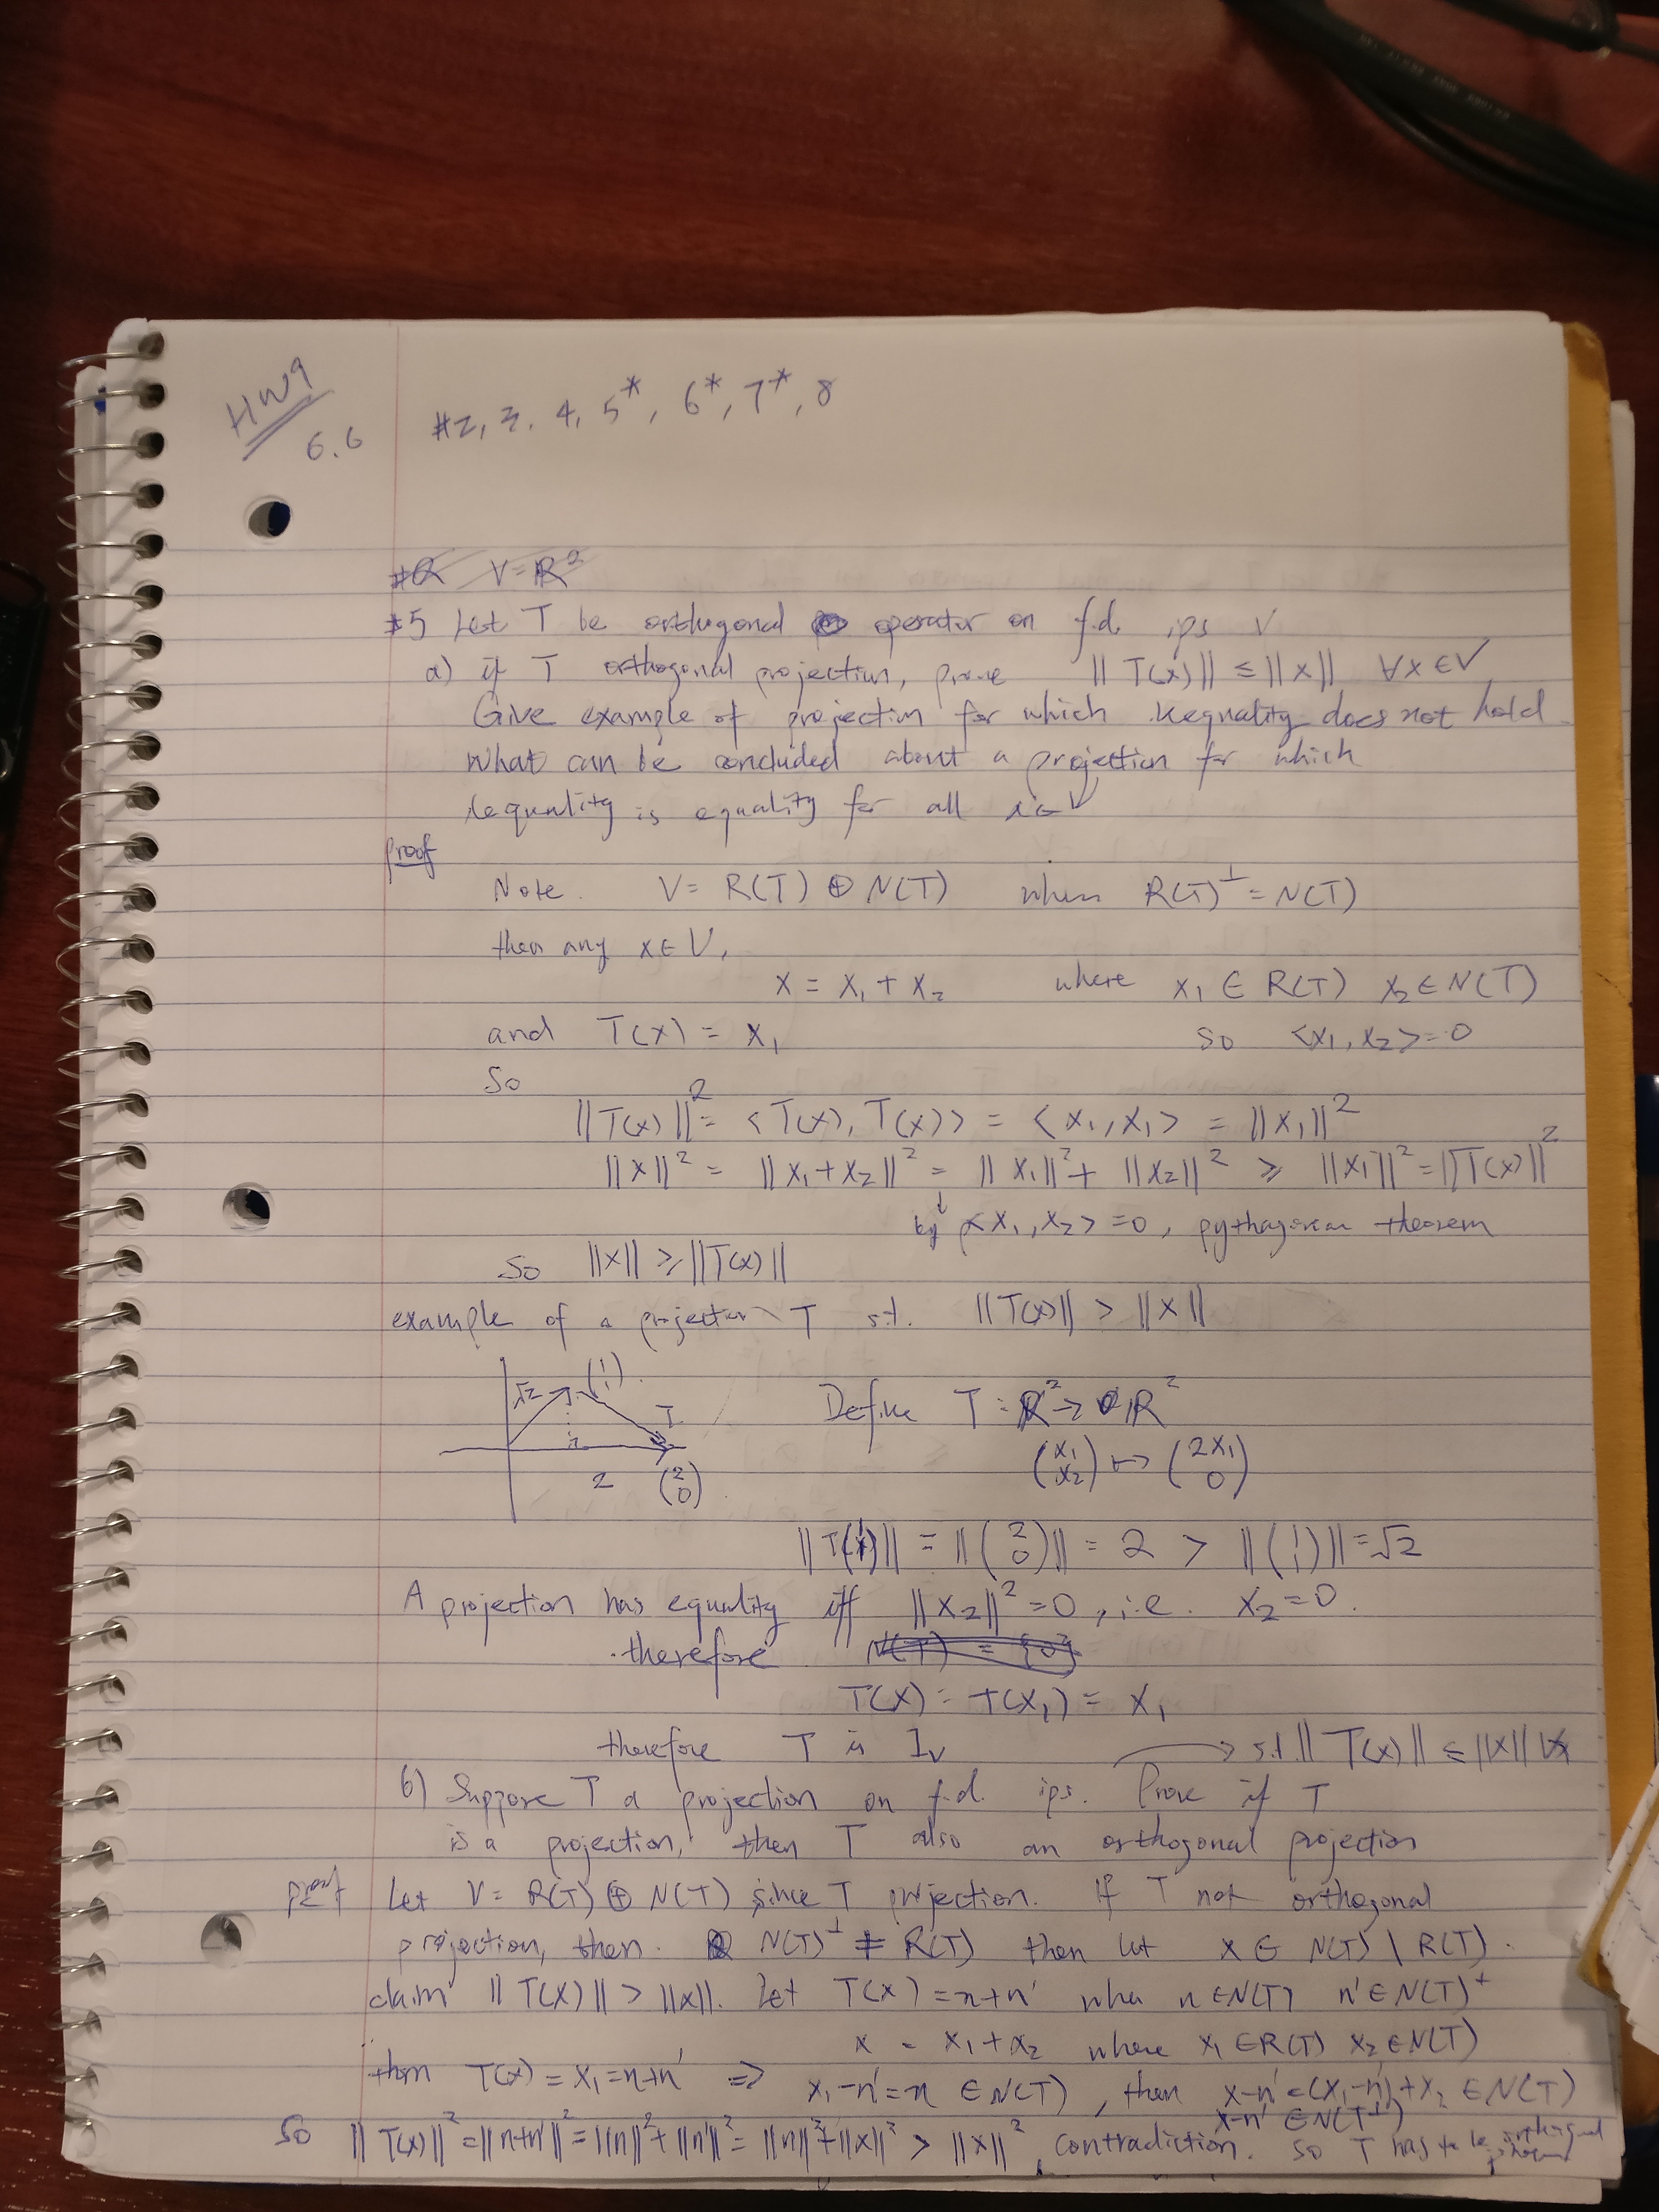 HW9
6.6 #2, 3, 4, 5*, 6*, 7*, 8
V=R²
#5 Let T be orthogonal operator on f.d. ips V
a) if T orthogonal projection, prove ||T(x)|| ≤ ||x|| ∀x∈V
Give example of projection for which inequality does not hold
What can be concluded about a projection for which
inequality is equality for all x∈V
proof
Note. V = R(T) ⊕ N(T) when R(T)^⊥ = N(T)
then any x∈V,
x = x₁ + x₂ where x₁ ∈ R(T) x₂ ∈ N(T)
and T(x) = x₁ so <x₁, x₂> = 0
So
||T(x)||² = <T(x), T(x)> = <x₁, x₁> = ||x₁||²
||x||² = ||x₁+x₂||² = ||x₁||² + ||x₂||² ≥ ||x₁||² = ||T(x)||²
by <x₁, x₂> = 0, pythagorean theorem
So ||x|| ≥ ||T(x)||
example of a projection T s.t. ||T(x)|| > ||x||
√2 (1 1) T
Define T: R² → R²
(x₁ x₂) ↦ (2x₁ 0)
2 (2 0)
||T(1 1)|| = ||(2 0)|| = 2 > ||(1 1)|| = √2
A projection has equality iff ||x₂||² = 0, i.e. x₂ = 0.
therefore N(T) = {0}
T(x) = T(x₁) = x₁
therefore T is I_V → s.t. ||T(x)|| ≤ ||x|| ∀x
6) Suppose T a projection on f.d. ips. Prove if T
is a projection, then T also an orthogonal projection
proof Let V = R(T) ⊕ N(T) since T projection. If T not orthogonal
projection, then N(T)^⊥ ≠ R(T) then let x ∈ N(T) \ R(T).
claim ||T(x)|| > ||x||. Let T(x) = n+n' when n∈N(T) n'∈N(T)^⊥
x = x₁ + x₂ where x₁∈R(T) x₂∈N(T)
then T(x) = x₁ = n+n' ⇒ x₁-n' = n ∈N(T), then x-n' = (x₁-n')+x₂ ∈N(T)
x-n' ∈N(T^⊥)
So ||T(x)||² = ||n+n'||² = ||n||² + ||n'||² = ||n||² + ||x||² > ||x||², contradiction. So T has to be orthogonal